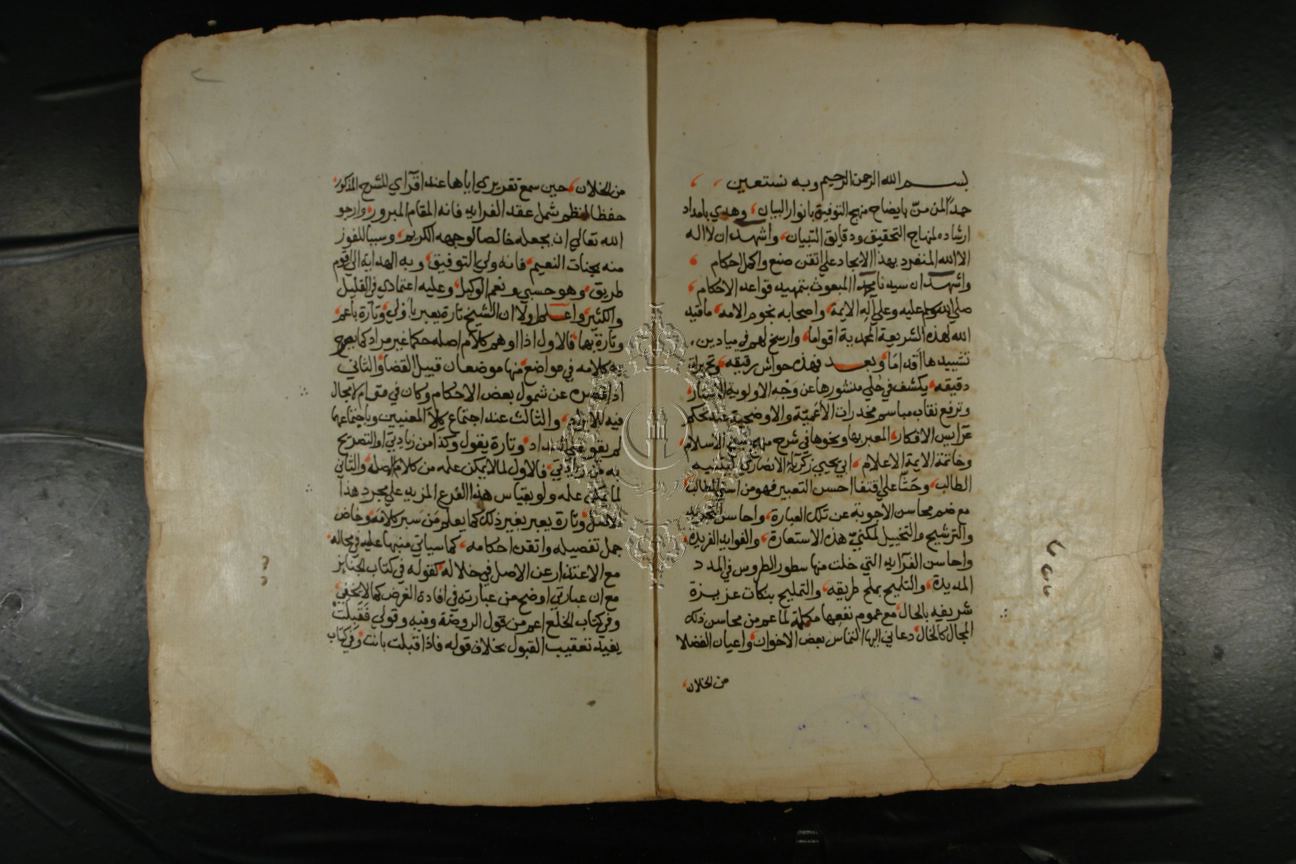 بسم الله الرحمن الرحيم وبه نستعين
حمداً لمن منّ بايضاح منهج التوفيق بانوار البيان وهدي بامداد
ارشاده لمنهاج التحقيق ودقائق التبيان واشهد ان لا اله
الا الله المنفرد بهذا الايجاد على اتقن صنع واكمل احكام
واشهد ان سيدنا محمدا المبعوث بتمهيد قواعد الاحكام
صلى الله وسلم عليه وعلى آله الايمة واصحابه نجوم الامه ما قيد
الله لهذه الشريعة المحمدية اقواما وارسخ لهم في ميادين
تشييدها أقداما وبعد فهذه حواش رقيقه وتحريرات
دقيقه يكشف في حُلي منشورها عن وَجْه الاولوية الاستار
وترفع نقاب مباسم مخدرات الاعمّية والاوضحية عند تحكم
عرايس الافكار المعبر بها ونحوها في شرح منهج شيخ الاسلام
وخاتمة الايمة الاعلام ابي يحيى زكريا الانصاري لتنبيه
الطالب وحثّا على اقتفا احسن التعبير فهو من اسني المطالب
مع ضم محاسن الاجوبة عن تلك العبارة واحاسن التجريد
والترشيح والتخييل لمكنيّ هذه الاستعارة والفوايد الفريدة
واحاسن الفرايد التي خلت منها سطور الطروس في المدد
المديدة والتلميح بملح طريقه والتمليح بنكات عزيزة
شريفه بالحال مع عموم نفعها مكملة لما عم من محاسن ذلك
المجال كالخال دعاني اليها التماس بعض الاخوان واعيان الفضلا
من الخلان
من الخلان حين سمع تقريري اياها عند اقرآي للشرح المذكور
حفظا لنظم شمل عقد الفرايد فانه المقام المبرور وارجو
الله تعالى ان يجعله خالصا لوجهه الكريم وسببا للفوز
منه بجنات النعيم فانه ولي التوفيق وبه الهداية الى اقوم
طريق وهو حسبي ونعم الوكيل وعليه اعتمادي في القليل
والكثير واعلم اولا ان الشيخ تارة يعبر باولى وتارة باعم
وتارة بها فالاول اذا اوهم كلام اصله حكما غير مراد كما
به كلامه في مواضع منها موضعان قبيل القضا والثاني
اذا قصر عن شمول بعض الاحكام وكان في مقام لا مجال
فيه للايهام والثالث عند اجتماع كلا المعنيين وباجتماعها
وتارة يقول وكذا من زيادتي او التصريح
به من زيادتي فالاول لما لا يمكن علمه من كلام اصله والثاني
لما يمكن علمه ولو بقياس هذا الفرع المزيد على مجرد هذا
الاصل وتارة يعبر بغير ذلك كما يعلم من سبر كلامه وخاض
جمل تفصيله واتقن احكامه كما سياتي منبها عليه في محاله
مع الاعتذار عن الاصل في خلاله كقوله في كتاب الجنايز
مع ان عبارتي اوضح من عبارته في افادة الغرض كما لا يخفى
وفي كتاب الخلع اعم من قول الروضة وفيه وقولي فَقَبِلَتْ
يفيد تعقيب القبول بخلاف قوله فاذا قبلت بانت وفي كتاب